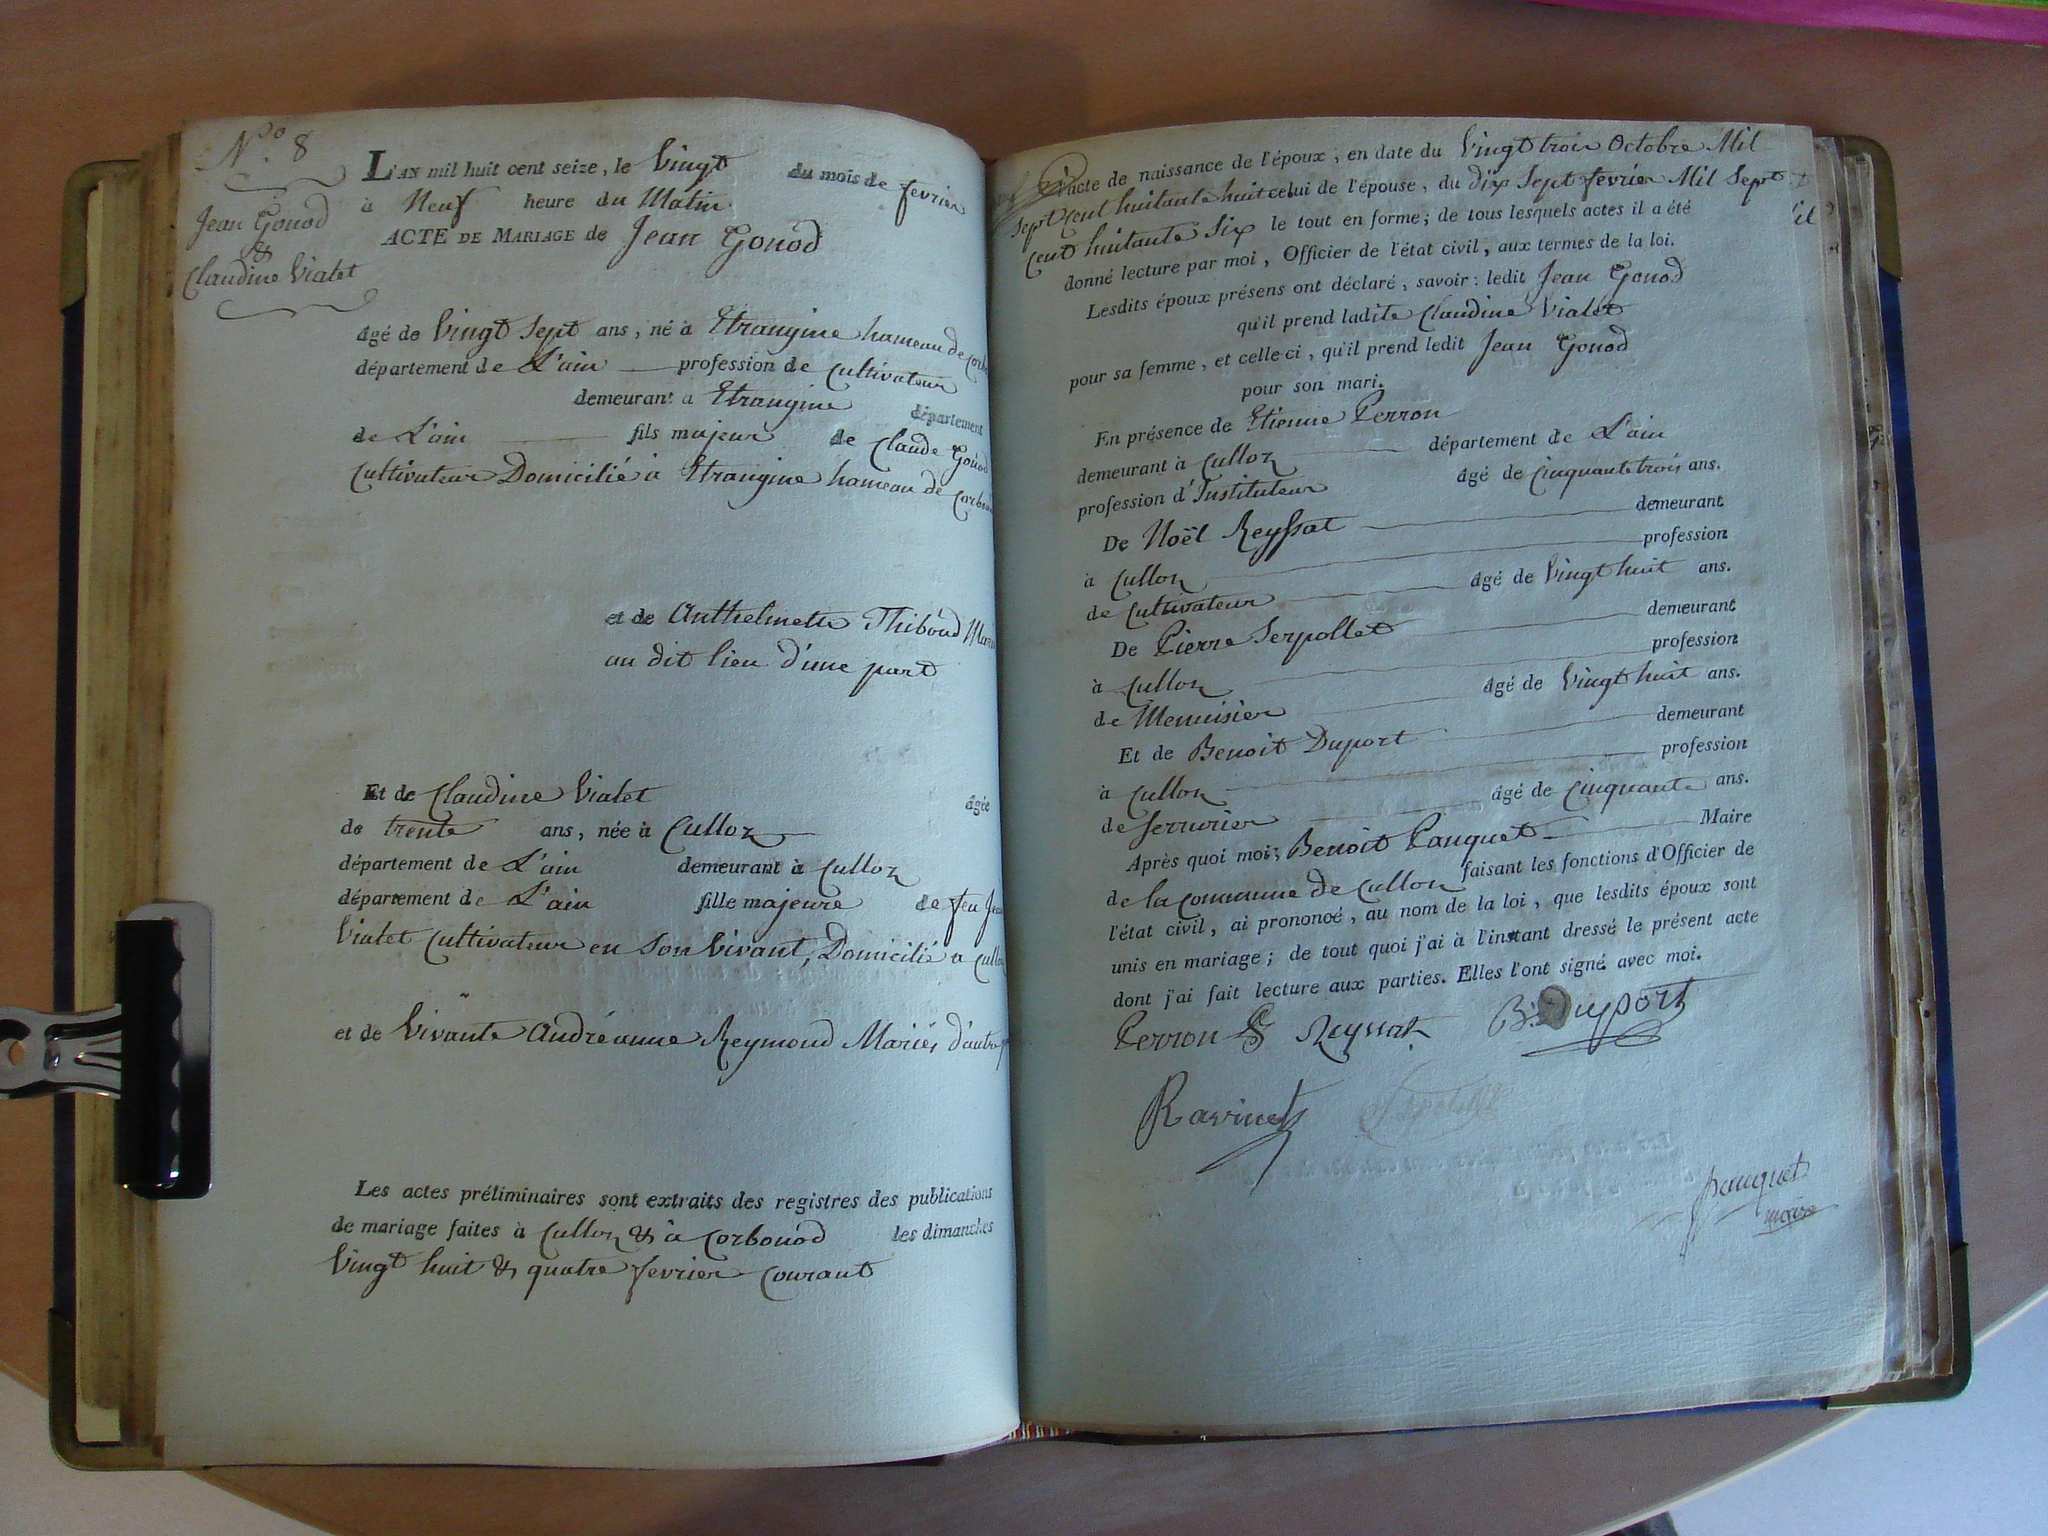 N.º 8
Jean Gonod
&
Claudine Vialet
L'AN mil huit cent seize, le Vingt du mois de fevrier
à Neuf heure du Matin
ACTE DE MARIAGE de Jean Gonod
âgé de Vingt Sept ans, né à Etrangine hameau de
département de L'ain profession de Cultivateur
demeurant à Etrangine département
de L'ain fils majeur de Claude Gonod
Cultivateur Domicilié à Etrangine hameau de
et de Anthelmette Thiboud
au dit lieu d'une part
Et de Claudine Vialet âgée
de trente ans, née à Culloz
département de L'ain demeurant à Culloz
département de L'ain fille majeure de feu
Vialet Cultivateur en Son Vivant, Domicilié a
et de Vivante Andréanne Reymond Mariés d'autre
Les actes préliminaires sont extraits des registres des publications
de mariage faites à Culloz & à Corbonod les dimanches
Vingt huit & quatre fevrier Courant
acte de naissance de l'époux, en date du Vingt trois Octobre Mil
Sept Cent huitante huit celui de l'épouse, du dix Sept fevrier Mil Sept
Cent huitante Six le tout en forme; de tous lesquels actes il a été
donné lecture par moi, Officier de l'état civil, aux termes de la loi.
Lesdits époux présens ont déclaré, savoir: ledit Jean Gonod
qu'il prend ladite Claudine Vialet
pour sa femme, et celle-ci, qu'il prend ledit Jean Gonod
pour son mari.
En présence de Etienne Perron
demeurant à Culloz département de L'ain
profession d'Instituteur âgé de Cinquante trois ans.
De Noël Reyssat demeurant
à Culloz profession
de Cultivateur âgé de Vingt huit ans.
De Pierre Serpollet demeurant
à Culloz profession
de Menuisier âgé de Vingt huit ans.
Et de Benoit Duport demeurant
à Culloz profession
de Serrurier âgé de Cinquante ans.
Après quoi moi, Benoit Pauquet Maire
de la Commune de Culloz faisant les fonctions d'Officier de
l'état civil, ai prononcé, au nom de la loi, que lesdits époux sont
unis en mariage; de tout quoi j'ai à l'instant dressé le présent acte
dont j'ai fait lecture aux parties. Elles l'ont signé avec moi.
Perron Reyssat B. Duport
Ravinet
pauquet
maire